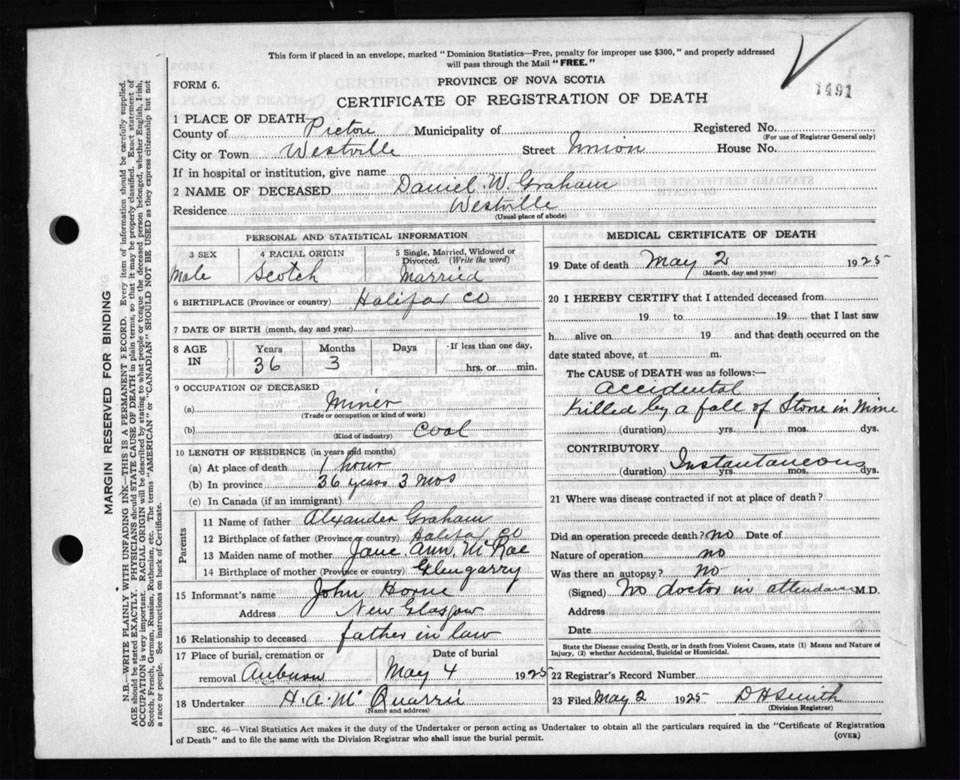 This form if placed in an envelope, marked "Dominion Statistics—Free, penalty for improper use $300," and properly addressed
will pass through the Mail "FREE."
1491
FORM 6.
PROVINCE OF NOVA SCOTIA
CERTIFICATE OF REGISTRATION OF DEATH
1 PLACE OF DEATH—
County of Pictou Municipality of Registered No.
(For use of Registrar General only)
City or Town Westville Street Union House No.
If in hospital or institution, give name
2 NAME OF DECEASED Daniel W. Graham
Residence Westville
(Usual place of abode)
PERSONAL AND STATISTICAL INFORMATION
3 SEX 4 RACIAL ORIGIN 5 Single, Married, Widowed or
Divorced. (Write the word)
Male Scotch Married
6 BIRTHPLACE (Province or country) Halifax Co
7 DATE OF BIRTH (month, day and year)
8 AGE IN Years Months Days If less than one day,
36 3 hrs. or min.
9 OCCUPATION OF DECEASED
(a) Miner
(Trade or occupation or kind of work)
(b) Coal
(Kind of industry)
10 LENGTH OF RESIDENCE (in years and months)
(a) At place of death 1 hour
(b) In province 36 years 3 mos
(c) In Canada (if an immigrant)
Parents
11 Name of father Alxander Graham
12 Birthplace of father (Province or country) Halifax Co
13 Maiden name of mother Jane Ann McRae
14 Birthplace of mother (Province or country) Glengarry
15 Informant's name John Horne
Address New Glasgow
16 Relationship to deceased father in law
17 Place of burial, cremation or Date of burial
removal Auburn May 4 1925
18 Undertaker H. A. McQuarrie
(Name and address)
MEDICAL CERTIFICATE OF DEATH
19 Date of death May 2 1925
(Month, day and year)
20 I HEREBY CERTIFY that I attended deceased from
19 to 19 that I last saw
h alive on 19 and that death occurred on the
date stated above, at m.
The CAUSE of DEATH was as follows:—
Accidental
Killed by a fall of Stone in Mine
(duration) yrs. mos. dys.
CONTRIBUTORY
Instantaneous
(duration) yrs. mos. dys.
21 Where was disease contracted if not at place of death?
Did an operation precede death? no Date of
Nature of operation no
Was there an autopsy? No
(Signed) No doctor in attendance M.D.
Address
Date
State the Disease causing Death, or in death from Violent Causes, state (1) Means and Nature of
Injury, (2) whether Accidental, Suicidal or Homicidal.
22 Registrar's Record Number
23 Filed May 2 1925 D H Smith
(Division Registrar)
SEC. 46—Vital Statistics Act makes it the duty of the Undertaker or person acting as Undertaker to obtain all the particulars required in the "Certificate of Registration
of Death" and to file the same with the Division Registrar who shall issue the burial permit.
(OVER)
MARGIN RESERVED FOR BINDING
N.B.—WRITE PLAINLY WITH UNFADING INK—THIS IS A PERMANENT RECORD. Every item of information should be carefully supplied.
AGE should be stated EXACTLY. PHYSICIANS should STATE CAUSE OF DEATH in plain terms, so that it may be properly classified. Exact statement of
OCCUPATION is very important. RACIAL ORIGIN will be described by stating to what people or tongue the deceased person belonged, whether English, Irish,
Scotch, French, German, Russian, Ruthenian, etc. The terms "AMERICAN" or "CANADIAN" SHOULD NOT BE USED as they express citizenship but not
a race or people. See instructions on back of Certificate.